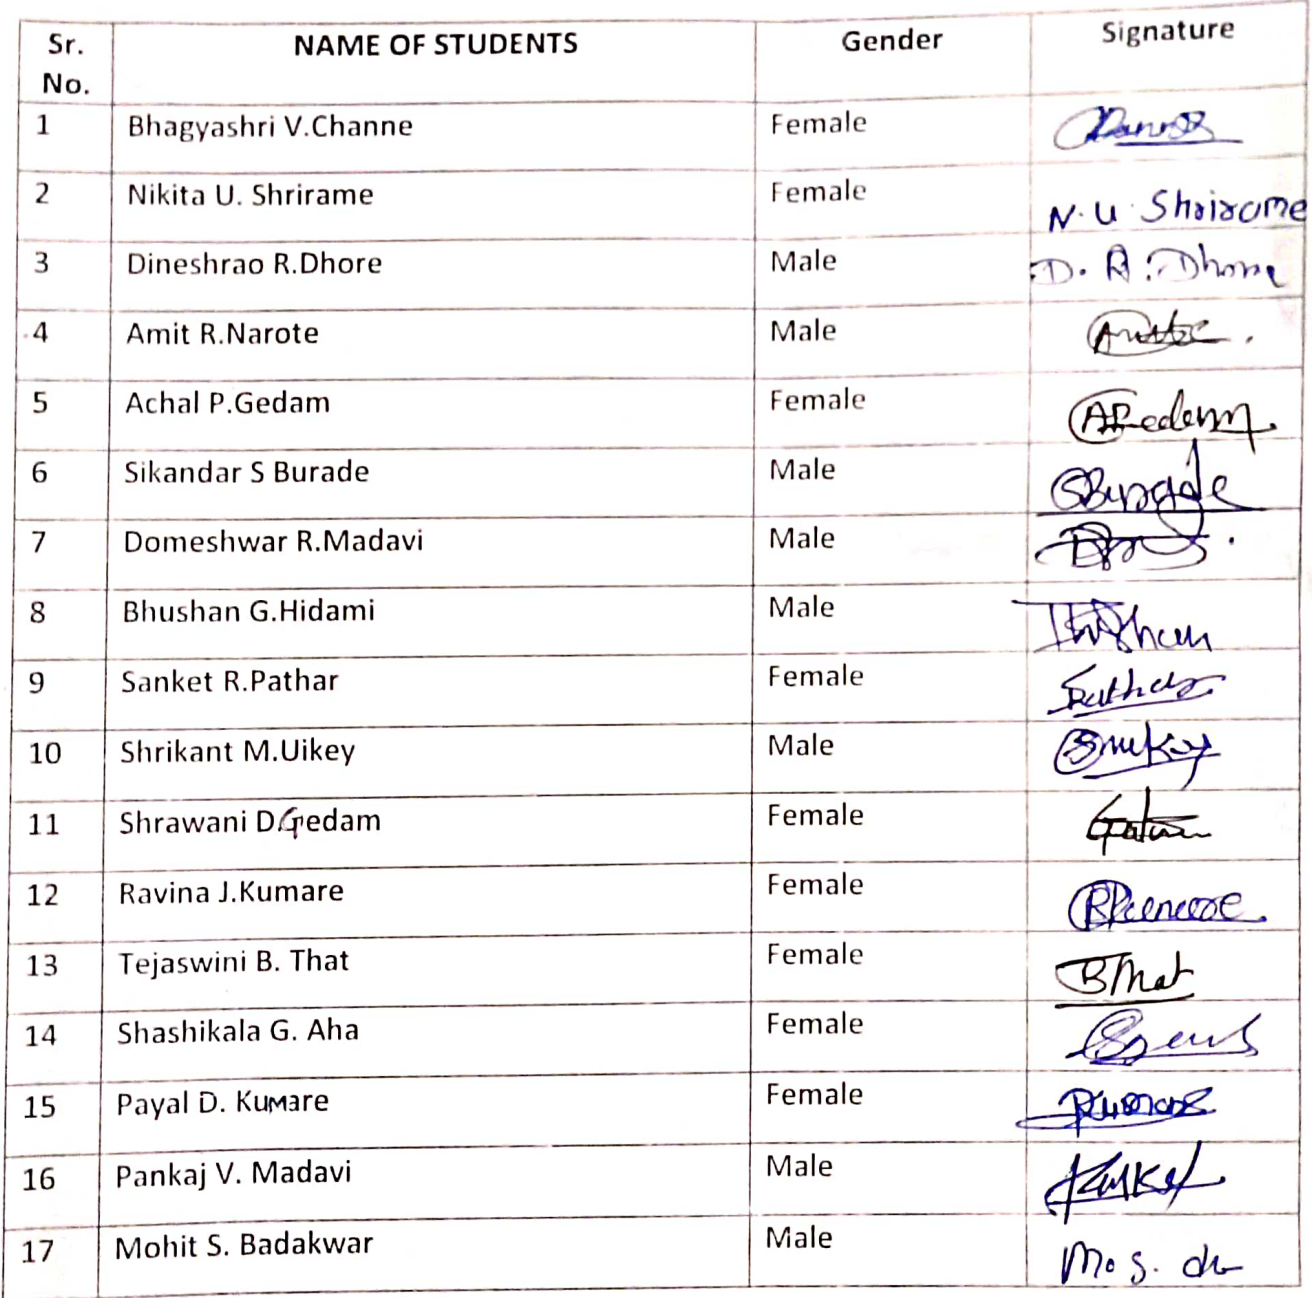 Sr. No. NAME OF STUDENTS Gender Signature
1 Bhagyashri V.Channe Female
2 Nikita U. Shrirame Female N. U. Shrirame
3 Dineshrao R.Dhore Male D. R. Dhore
4 Amit R.Narote Male
5 Achal P.Gedam Female
6 Sikandar S Burade Male SBurade
7 Domeshwar R.Madavi Male
8 Bhushan G.Hidami Male
9 Sanket R.Pathar Female
10 Shrikant M.Uikey Male
11 Shrawani D.Gedam Female
12 Ravina J.Kumare Female
13 Tejaswini B. That Female BThat
14 Shashikala G. Aha Female
15 Payal D. Kumare Female
16 Pankaj V. Madavi Male
17 Mohit S. Badakwar Male